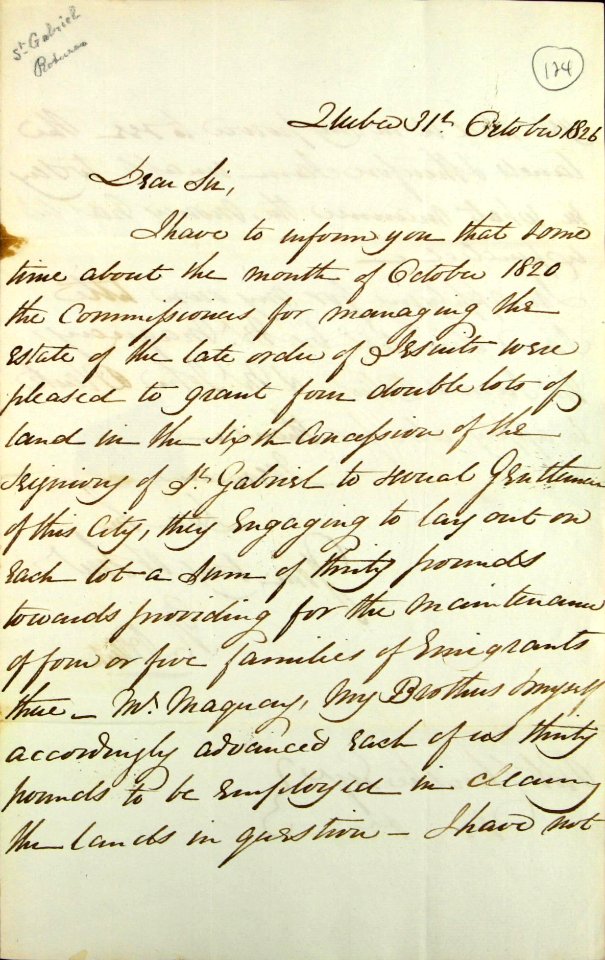 St Gabriel
124
Quebec 31st October 1826
Dear Sir,
I have to inform you that some
time about the month of October 1820
the Commissioners for managing the
Estate of the late order of Jesuits were
pleased to grant four double lots of
land in the Sixth Concession of the
Seigniory of St Gabriel to several Gentlemen
of this City, they Engaging to lay out on
Each lot a Sum of thirty pounds
towards providing for the maintenance
of four or five families of Emigrants
there — Mr Maquay, My Brothers & myself
accordingly advanced Each of us thirty
pounds to be Employed in clearing
the lands in question — I have not